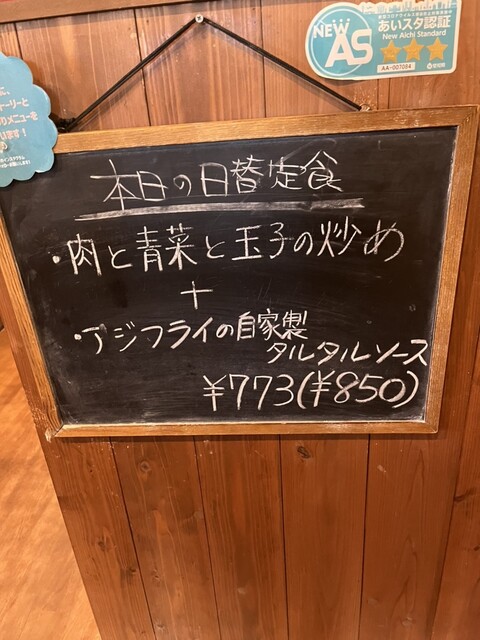 NEW
AS
あいスタ認証
New Aichi Standard
AA-007084
本日の日替定食
・肉と青菜と玉子の炒め
+
・アジフライの自家製
タルタルソース
¥773(¥850)